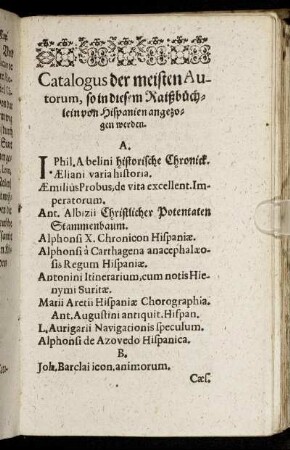 Catalogus der meisten Au-
torum, so in diesem Raißbüch-
lein von Hispanien angezo-
gen werden.
A.
I Phil. Abelini historische Chronick.
Æliani varia historia.
Æmilius Probus, de vita excellent. Im-
peratorum.
Ant. Albizii Christlicher Potentaten
Stammenbaum.
Alphonsi X. Chronicon Hispaniæ.
Alphonsi à Carthagena anacephalæo-
sis Regum Hispaniæ.
Antonini Itinerarium, cum notis Hie-
nymi Suritæ.
Marii Aretii Hispaniæ Chorographia.
Ant. Augustini antiquit. Hispan.
L. Aurigarii Navigationis speculum.
Alphonsi de Azovedo Hispanica.
B.
Joh. Barclai icon. animorum.
Cæs.